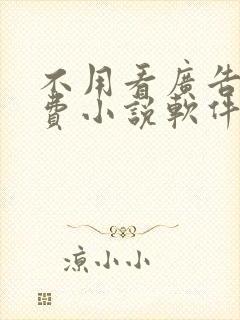 不用看廣告
費小說軟件
涼小小